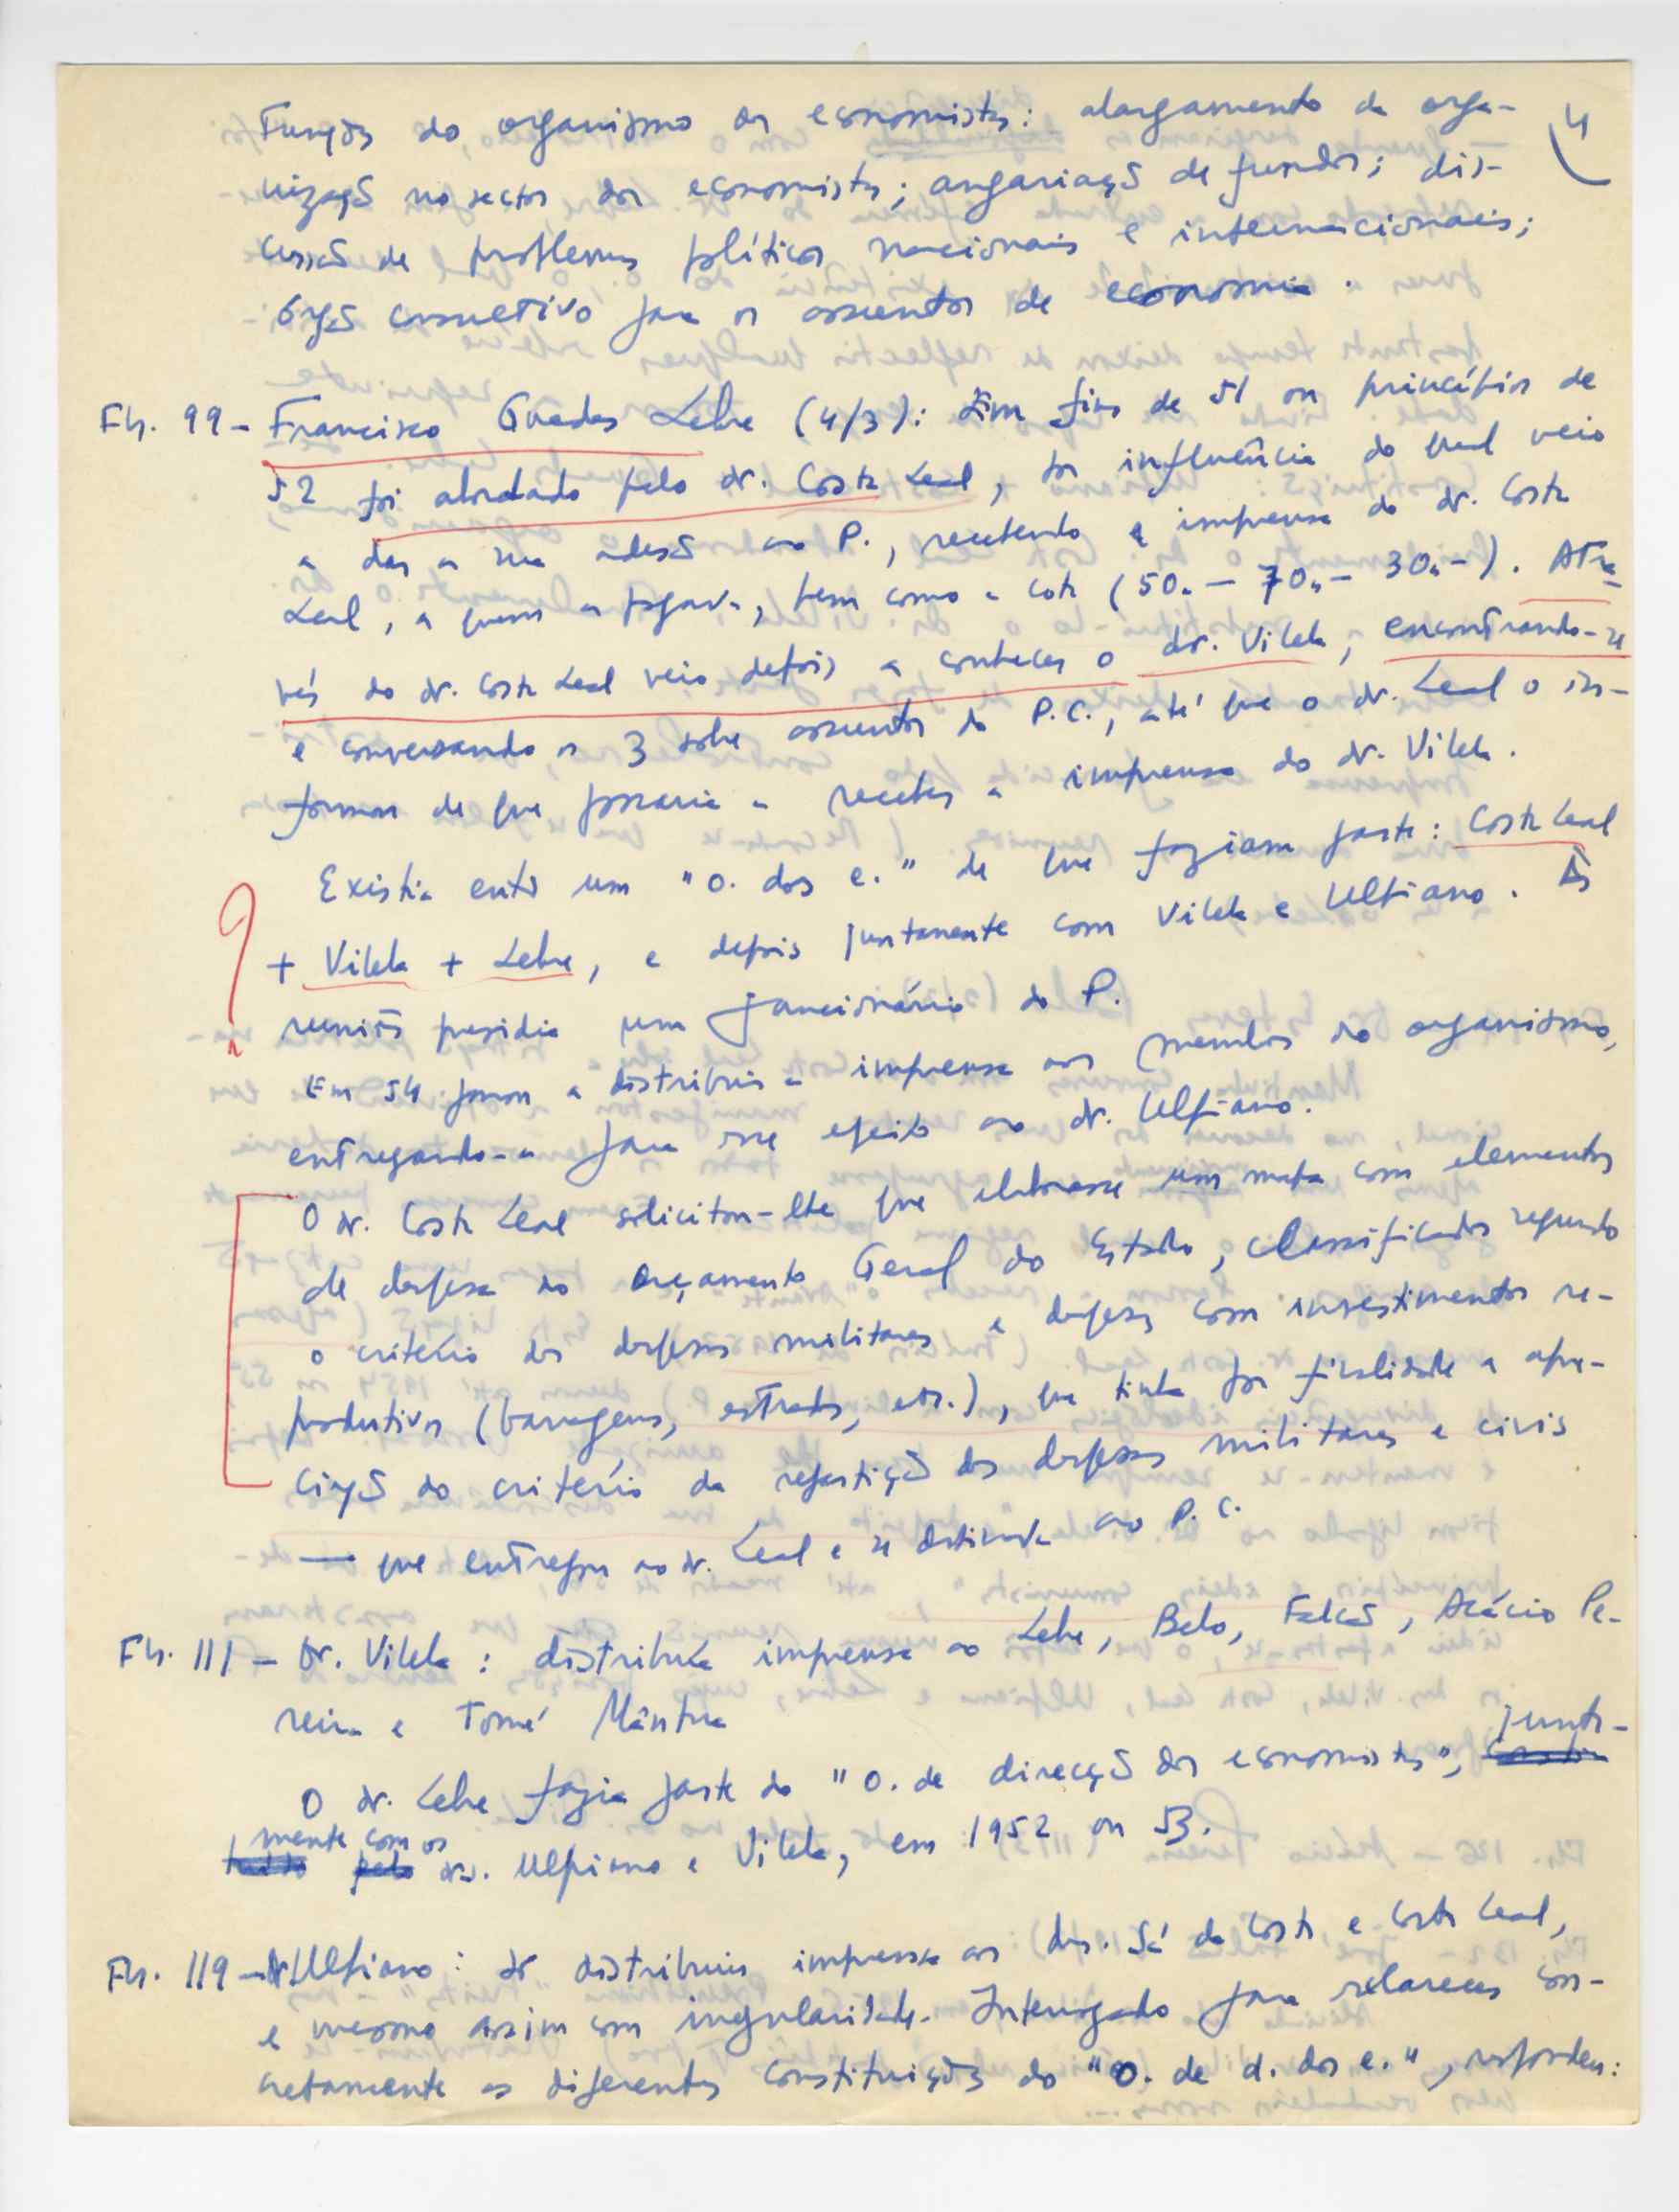 Funções do organismo dos economistas: alargamento da orga-
4
nização no sector dos economistas; angariação de fundos; dis-
cussão de problemas políticos nacionais e internacionais;
órgão consultivo para os assuntos de economia.
Fls. 99 - Francisco Guedes Lebre (4/3): Em fins de 51 ou princípios de
52 foi abordado pelo dr. Costa Leal, por influência do qual veio
a dar a sua adesão ao P., recebendo a imprensa do dr. Costa
Leal, a quem a pagava, bem como a cota (50.- 70.- 30.-). Atra-
vés do dr. Costa Leal veio depois a conhecer o dr. Vilela, encontrando-se
e conversando os 3 sobre assuntos do P.C., até que o dr. Leal o in-
formou de que passaria a receber a imprensa do dr. Vilela.
Existia então um "o. dos e." de que faziam parte: Costa Leal
+ Vilela + Lebre, e depois juntamente com Vilela e Ulpiano. Às
reuniões presidia um funcionário do P.
Em 54 passou a distribuir a imprensa aos membros do organismo,
entregando-a para esse efeito ao dr. Ulpiano.
O dr. Costa Leal solicitou-lhe que elaborasse um mapa com elementos
de despesa do Orçamento Geral do Estado, classificados segundo
o critério das despesas militares e despesas com investimentos re-
produtivos (barragens, estradas, etc.), que tinha por finalidade a apre-
ciação do critério da repartição das despesas militares e civis
— que entregou ao dr. Leal e se destinava ao P.C.
Fls. 111 - Dr. Vilela: distribuía imprensa ao Lebre, Belo, Falcão, Acácio Pe-
reira e Tomé Mântua
O dr. Lebre fazia parte do "o. de direcção dos economistas", junta-
mente com os drs. Ulpiano e Vilela, em 1952 ou 53.
Fls. 119 - Dr. Ulpiano: só distribuiu imprensa aos drs. Sá da Costa e Costa Leal,
e mesmo assim com irregularidade. Interrogado para esclarecer con-
cretamente as diferentes constituições do "o. de d. dos e.", respondeu: